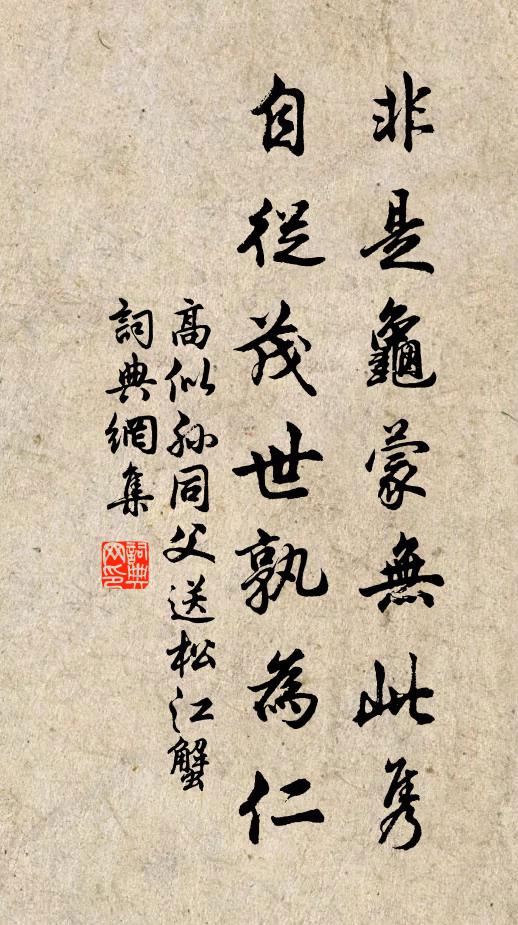 非是龜蒙無此隽
自從茂世孰為仁
高似孫同父送松江蟹
詞典網集
詞典
网印